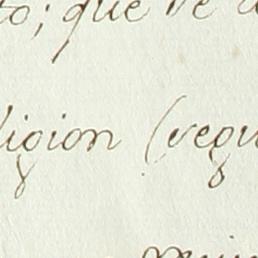 to; que ve
ligion (regu